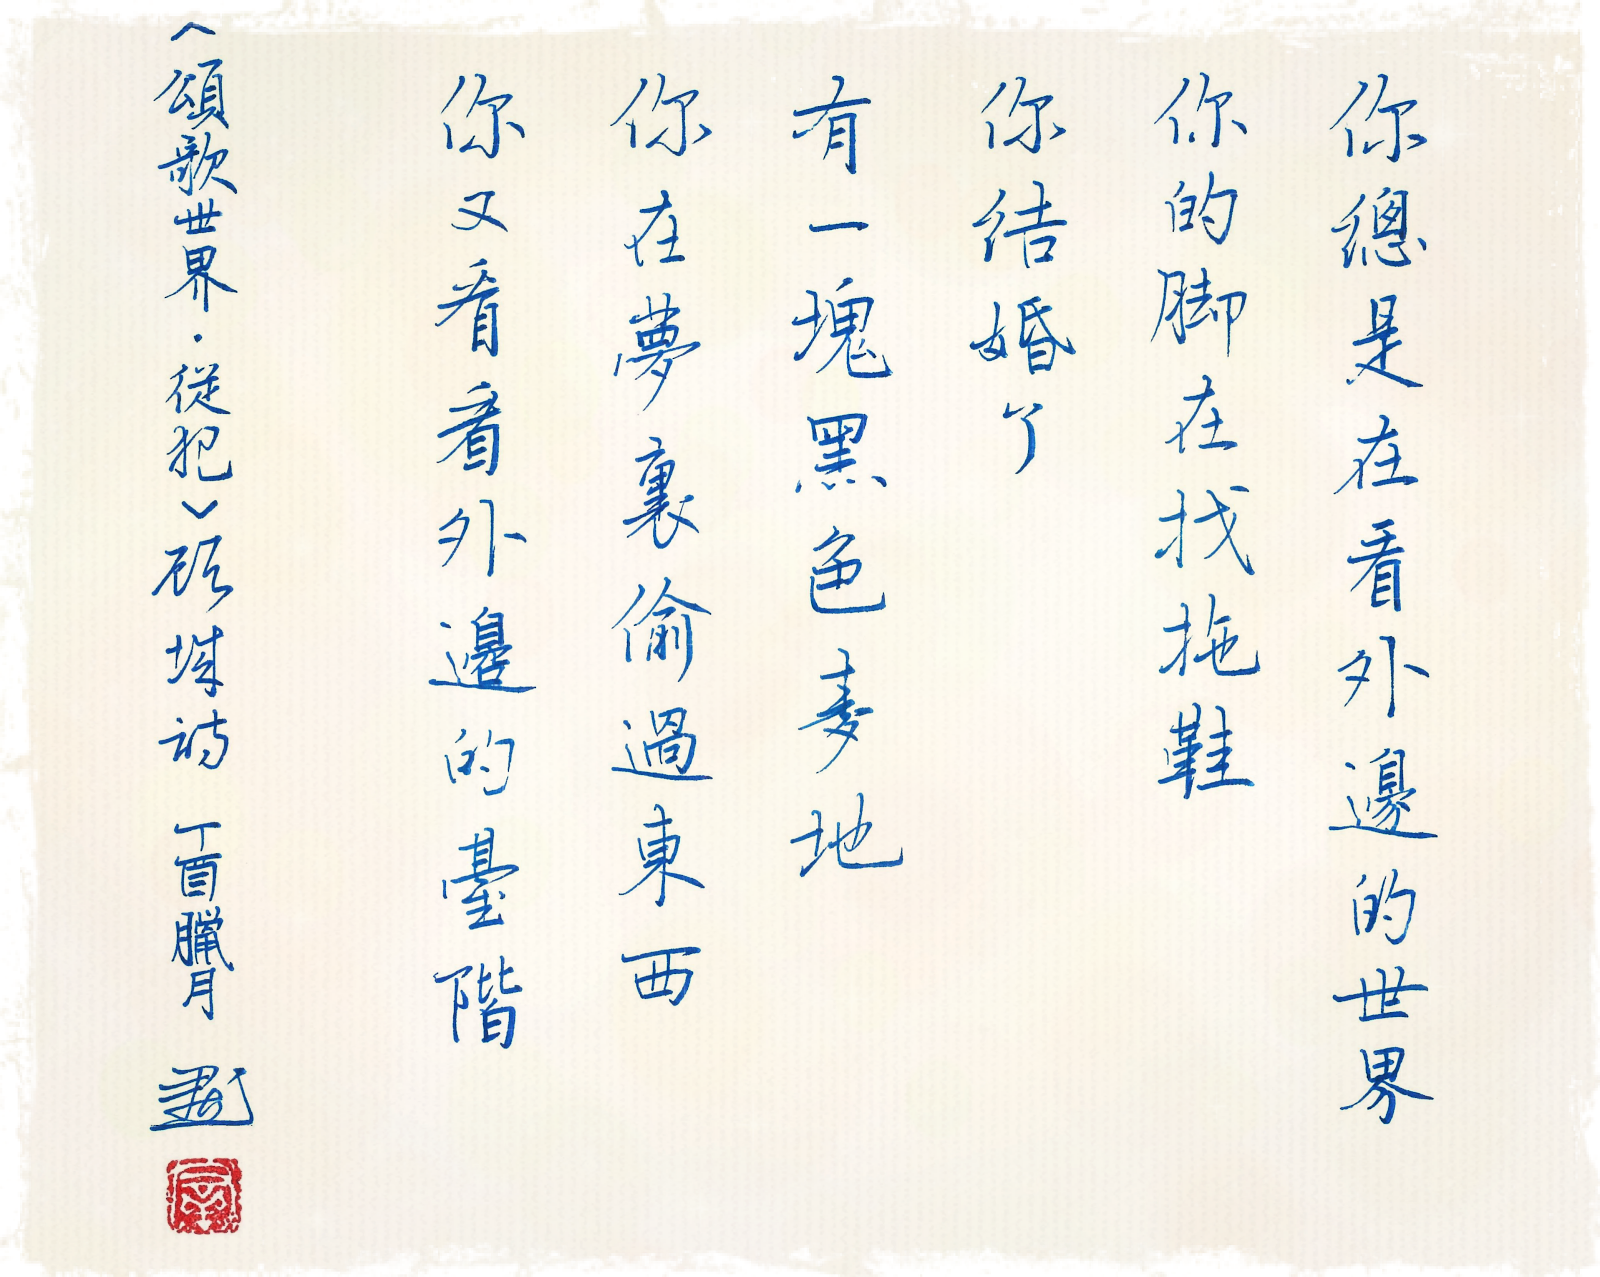 你總是在看外邊的世界
你的脚在找拖鞋
你结婚了
有一塊黑色麥地
你在夢裏偷過東西
你又看看外邊的臺階
〈頌歌世界·從犯〉顾城詩 丁酉臘月